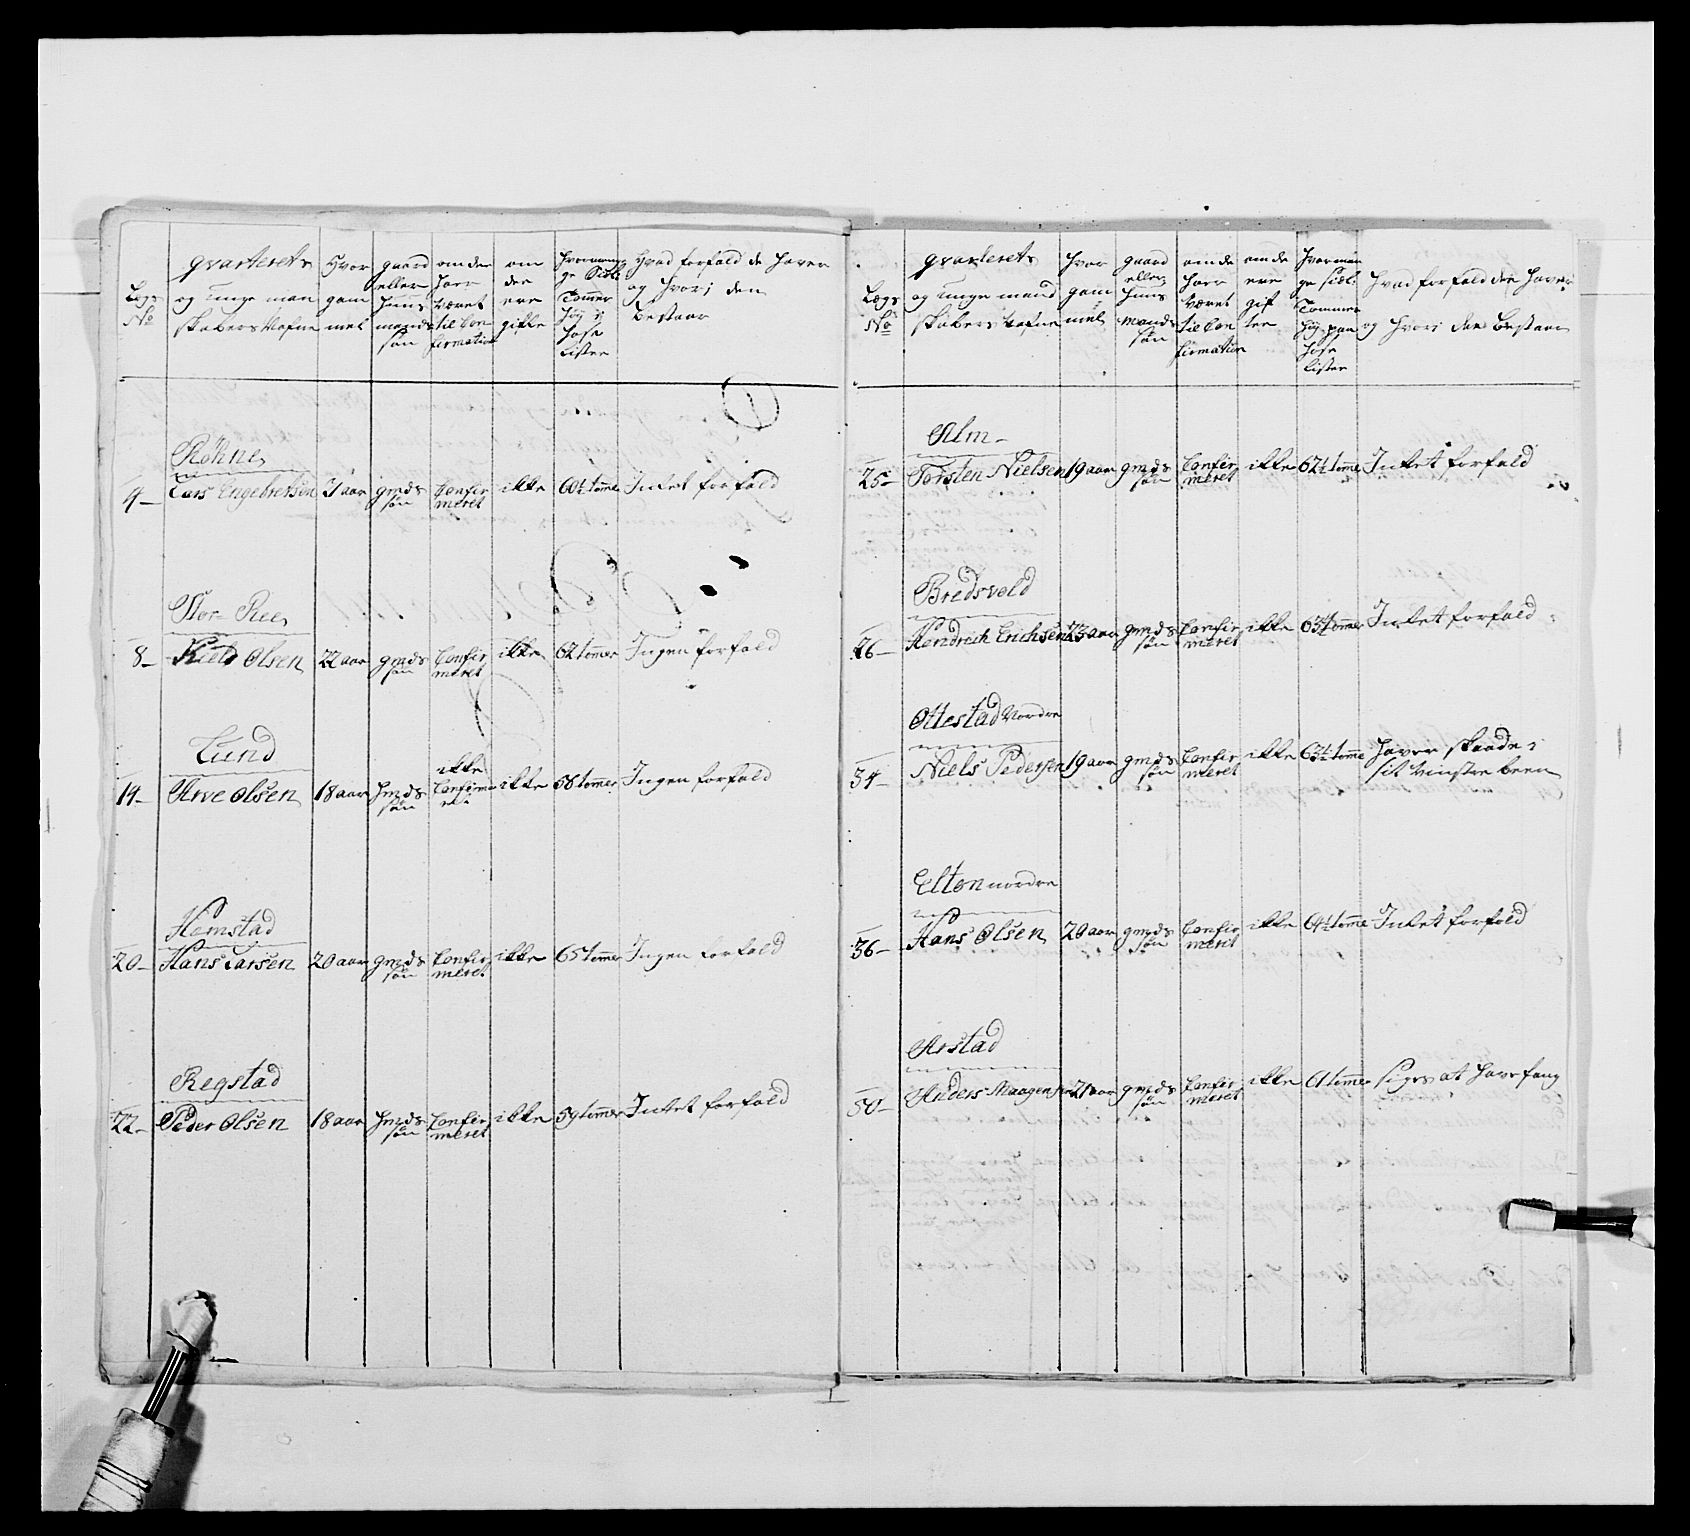 Legs No
Qvarterets og unge mandskabers Nafne
Hvor gammel
gaard eller huusmands søn
om de har været til Confirmation
om de ere gifte
hvormange Siæl. Tommer høy i hose lister
Hvad forfald de haver og hvori den bestaar
Røhne
4 – Lars Engebretsen 21 aar gmds søn Confirmeret ikke 60½ tomme Intet forfald
Stor-Ree
8 – Kield Olsen 22 aar gmds søn Confirmeret ikke 62 tommer Ingen forfald
Lund
14 – Arve Olsen 18 aar hmds søn ikke Confirmeret ikke 58 tommer Ingen forfald
Homstad
20 – Hans Larsen 20 aar gmds søn Confirmeret ikke 65 tommer Ingen forfald
Regstad
22 – Peder Olsen 18 aar hmds søn Confirmeret ikke 59 tommer Intet forfald
Legs No
qvarterets og unge mandskabers nafne
hvor gammel
gaard eller huusmands søn
om de har været til Confirmation
om de ere gifte
hvormange Siæl. Tommer høy paa hose lister
hvad forfald de haver og hvori den bestaar
Alm
25 – Torsten Nielsen 19 aar gmds søn Confirmeret ikke 62½ tomme Intet forfald
Bredsvold
26 – Hendrich Erichsen 23 aar gmds søn Confirmeret ikke 63¼ tommer Intet forfald
Ottestad Nordre
34 – Niels Pedersen 19 aar gmds søn Confirmeret ikke 63½ tomme haver skaade i
sit vinstre been
Elton nordre
36 – Hans Olsen 20 aar gmds søn Confirmeret ikke 64½ tomme Intet forfald
Arstad
50 – Anders Maagensen 21 aar gmds søn Confirmeret ikke 61 tommer siges at have fang